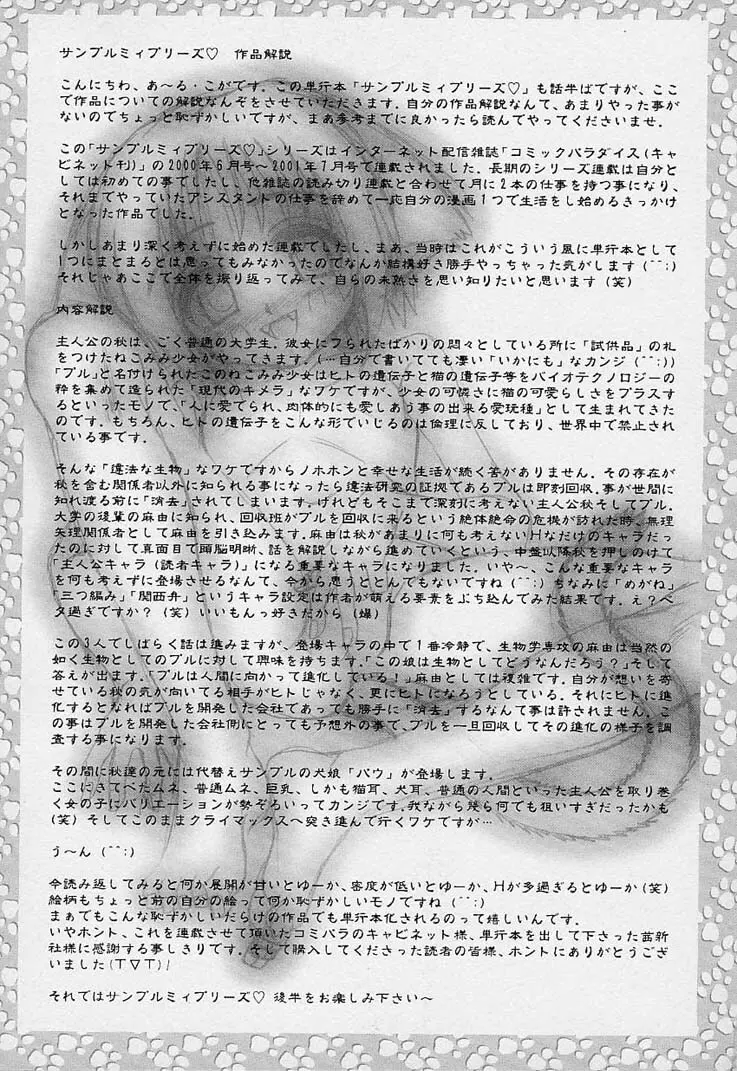 サンプルミィプリーズ♡　作品解説
こんにちわ、あ〜る・こがです。この単行本「サンプルミィプリーズ♡」も話半ばですが、ここ
で作品についての解説なんぞをさせていただきます。自分の作品解説なんて、あまりやった事が
ないのでちょっと恥ずかしいですが、まあ参考までに良かったら読んでやってくださいませ。
この「サンプルミィプリーズ♡」シリーズはインターネット配信雑誌「コミックパラダイス(キャ
ビネット刊)」の2000年6月号〜2001年7月号で連載されました。長期のシリーズ連載は自分と
しては初めての事でしたし、他雑誌の読み切り連載と合わせて月に2本の仕事を持つ事になり、
それまでやっていたアシスタントの仕事を辞めて一応自分の漫画1つで生活をし始めるきっかけ
となった作品でした。
しかしあまり深く考えずに始めた連載でしたし、まあ、当時はこれがこういう風に単行本として
1つにまとまるとは思ってもみなかったのでなんか結構好き勝手やっちゃった気がします(^^;)
それじゃあここで全体を振り返ってみて、自らの未熟さを思い知りたいと思います(笑)
内容解説
主人公の秋は、ごく普通の大学生。彼女にフられたばかりの悶々としている所に「試供品」の札
をつけたねこみみ少女がやってきます。(…自分で書いてても凄い「いかにも」なカンジ(^^;))
「プル」と名付けられたこのねこみみ少女はヒトの遺伝子と猫の遺伝子等をバイオテクノロジーの
粋を集めて造られた「現代のキメラ」なワケですが、少女の可憐さに猫の可愛らしさをプラスす
るといったモノで、「人に愛でられ、肉体的にも愛しあう事の出来る愛玩種」として生まれてきた
のです。もちろん、ヒトの遺伝子をこんな形でいじるのは倫理に反しており、世界中で禁止され
ている事です。
そんな「違法な生物」なワケですからノホホンと幸せな生活が続く筈がありません。その存在が
秋を含む関係者以外に知られる事になったら違法研究の証拠であるプルは即刻回収。事が世間に
知れ渡る前に「消去」されてしまいます。けれどもそこまで深刻に考えない主人公秋そしてプル。
大学の後輩の麻由に知られ、回収班がプルを回収に来るという絶体絶命の危機が訪れた時、無理
矢理関係者として麻由を引き込みます。麻由は秋があまりに何も考えないHなだけのキャラだっ
たのに対して真面目で頭脳明晰、話を解説しながら進めていくという、中盤以降秋を押しのけて
「主人公キャラ(読者キャラ)」になる重要なキャラになりました。いや〜、こんな重要なキャラ
を何も考えずに登場させるなんて、今から思うととんでもないですね(^^;)ちなみに「めがね」
「三つ編み」「関西弁」というキャラ設定は作者が萌える要素をぶち込んでみた結果です。え？ベ
タ過ぎですか？(笑)いいもんっ好きだから(爆)
この3人でしばらく話は進みますが、登場キャラの中で1番冷静で、生物学専攻の麻由は当然の
如く生物としてのプルに対して興味を持ちます。「この娘は生物としてどうなんだろう？」そして
答えが出ます。「プルは人間に向かって進化している！」麻由としては複雑です。自分が想いを寄
せている秋の気が向いてる相手がヒトじゃなく、更にヒトになろうとしている。それにヒトに進
化するとなればプルを開発した会社であっても勝手に「消去」するなんて事は許されません。こ
の事はプルを開発した会社側にとっても予想外の事で、プルを一旦回収してその進化の様子を調
査する事になります。
その間に秋達の元には代替えサンプルの犬娘「バウ」が登場します。
ここにきてぺたムネ、普通ムネ、巨乳、しかも猫耳、犬耳、普通の人間といった主人公を取り巻
く女の子にバリエーションが勢ぞろいってカンジです。我ながら幾ら何でも狙いすぎだったかも
(笑)そしてこのままクライマックスへ突き進んで行くワケですが…
う〜ん(^^;)
今読み返してみると何か展開が甘いとゆーか、密度が低いとゆーか、Hが多過ぎるとゆーか(笑)
絵柄もちょっと前の自分の絵って何か恥ずかしいモノですね(^^;)
まぁでもこんな恥ずかしいだらけの作品でも単行本化されるのって嬉しいんです。
いやホント、これを連載させて頂いたコミパラのキャビネット様、単行本を出して下さった茜新
社様に感謝する事しきりです。そして購入してくださった読者の皆様、ホントにありがとうござ
いました(T▽T)!
それではサンプルミィプリーズ♡ 後半をお楽しみ下さい〜